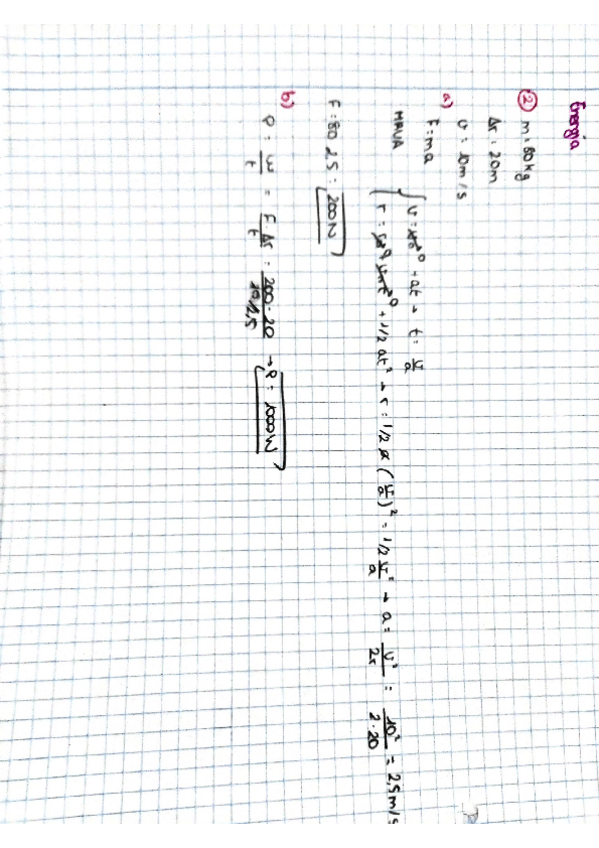 Energia
② m = 80 kg
Δr = 20m
v = 10m/s
a) F = ma
MRUA { v = v0⁰ + at → t = v/a
r = r0⁰ + v0t⁰ + 1/2 at² → r = 1/2 a (v/a)² = 1/2 v²/a → a = v²/2r = 10²/2·20 = 2,5 m/s
F = 80 · 2,5 = 200 N
b) P = W/t = F·Δr/t = 200·20/ → P = 1000 W